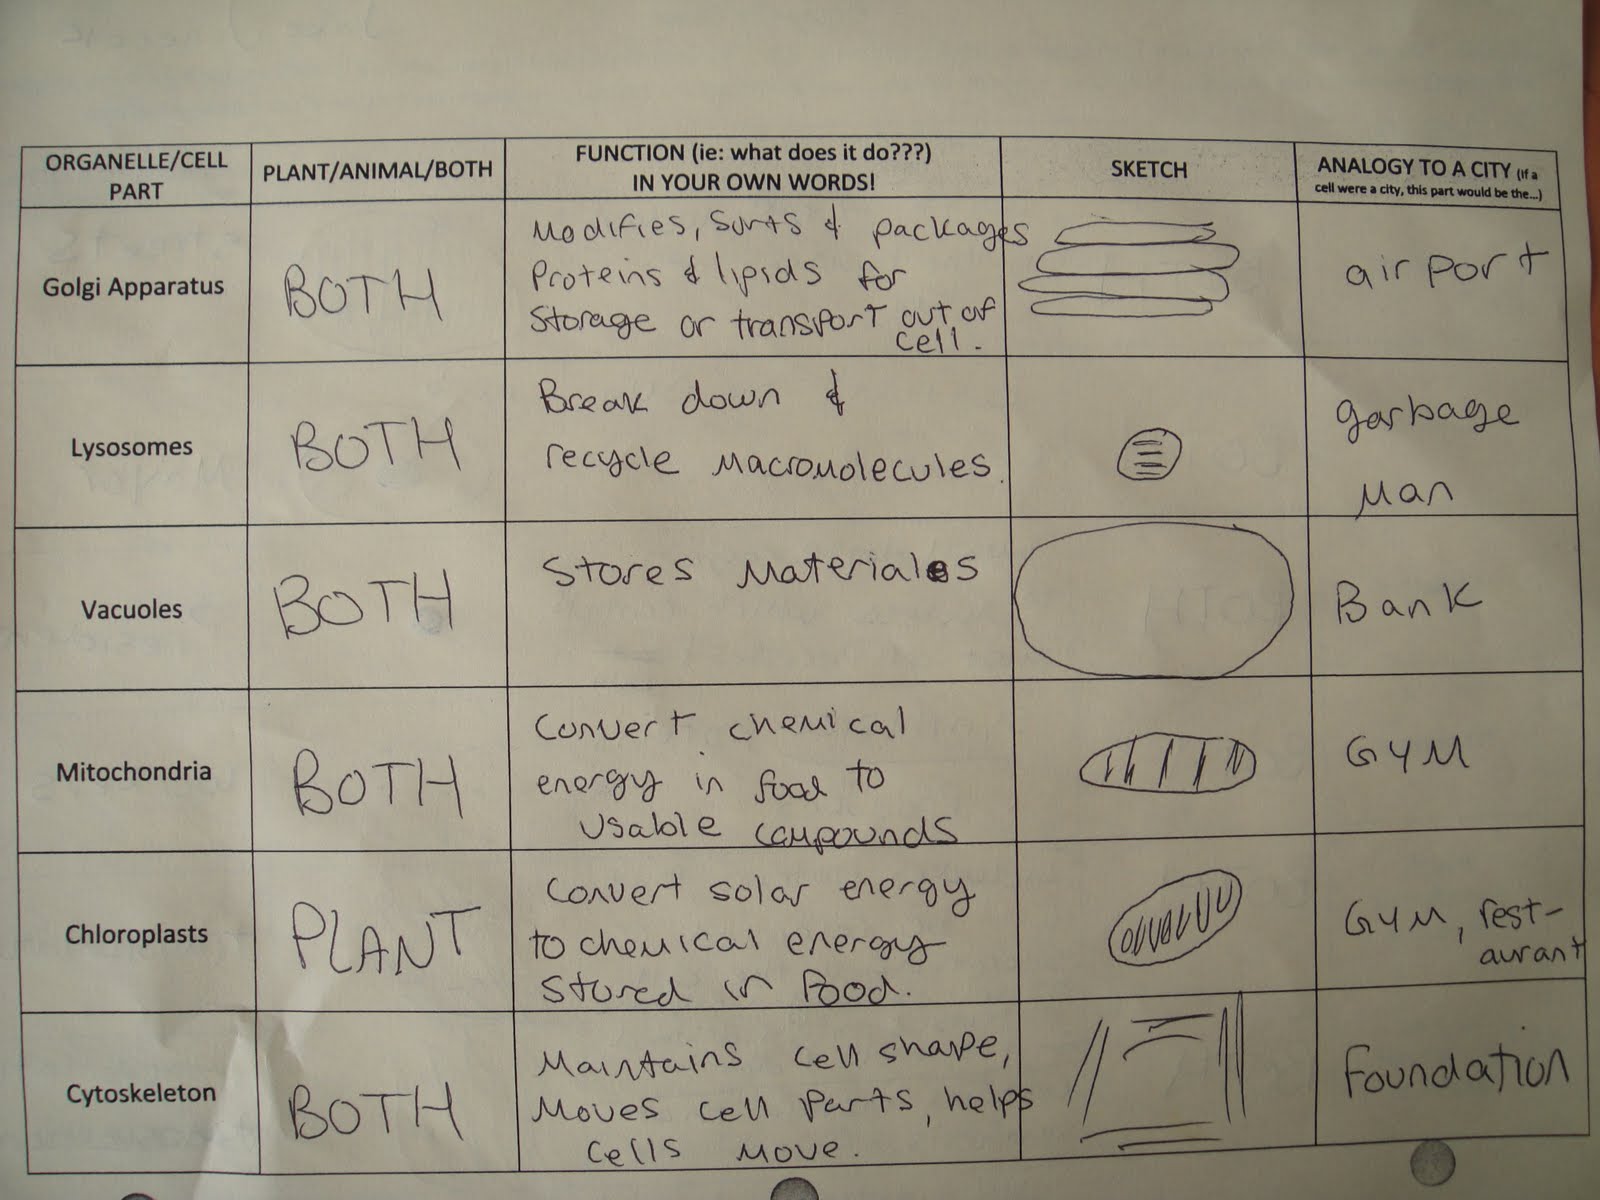 ORGANELLE/CELL PART
PLANT/ANIMAL/BOTH
FUNCTION (ie: what does it do???)
IN YOUR OWN WORDS!
SKETCH
ANALOGY TO A CITY (If a
cell were a city, this part would be the...)
Golgi Apparatus
BOTH
Modifies, Sorts & packages
Proteins & lipids for
Storage or transport out of
cell.
airport
Lysosomes
BOTH
Break down &
recycle Macromolecules.
garbage
Man
Vacuoles
BOTH
Stores Materials
Bank
Mitochondria
BOTH
Convert chemical
energy in food to
usable compounds
GYM
Chloroplasts
PLANT
Convert solar energy
to chemical energy
stored in food.
GYM, rest-
aurant
Cytoskeleton
BOTH
Maintains cell shape,
Moves cell parts, helps
cells move.
Foundation